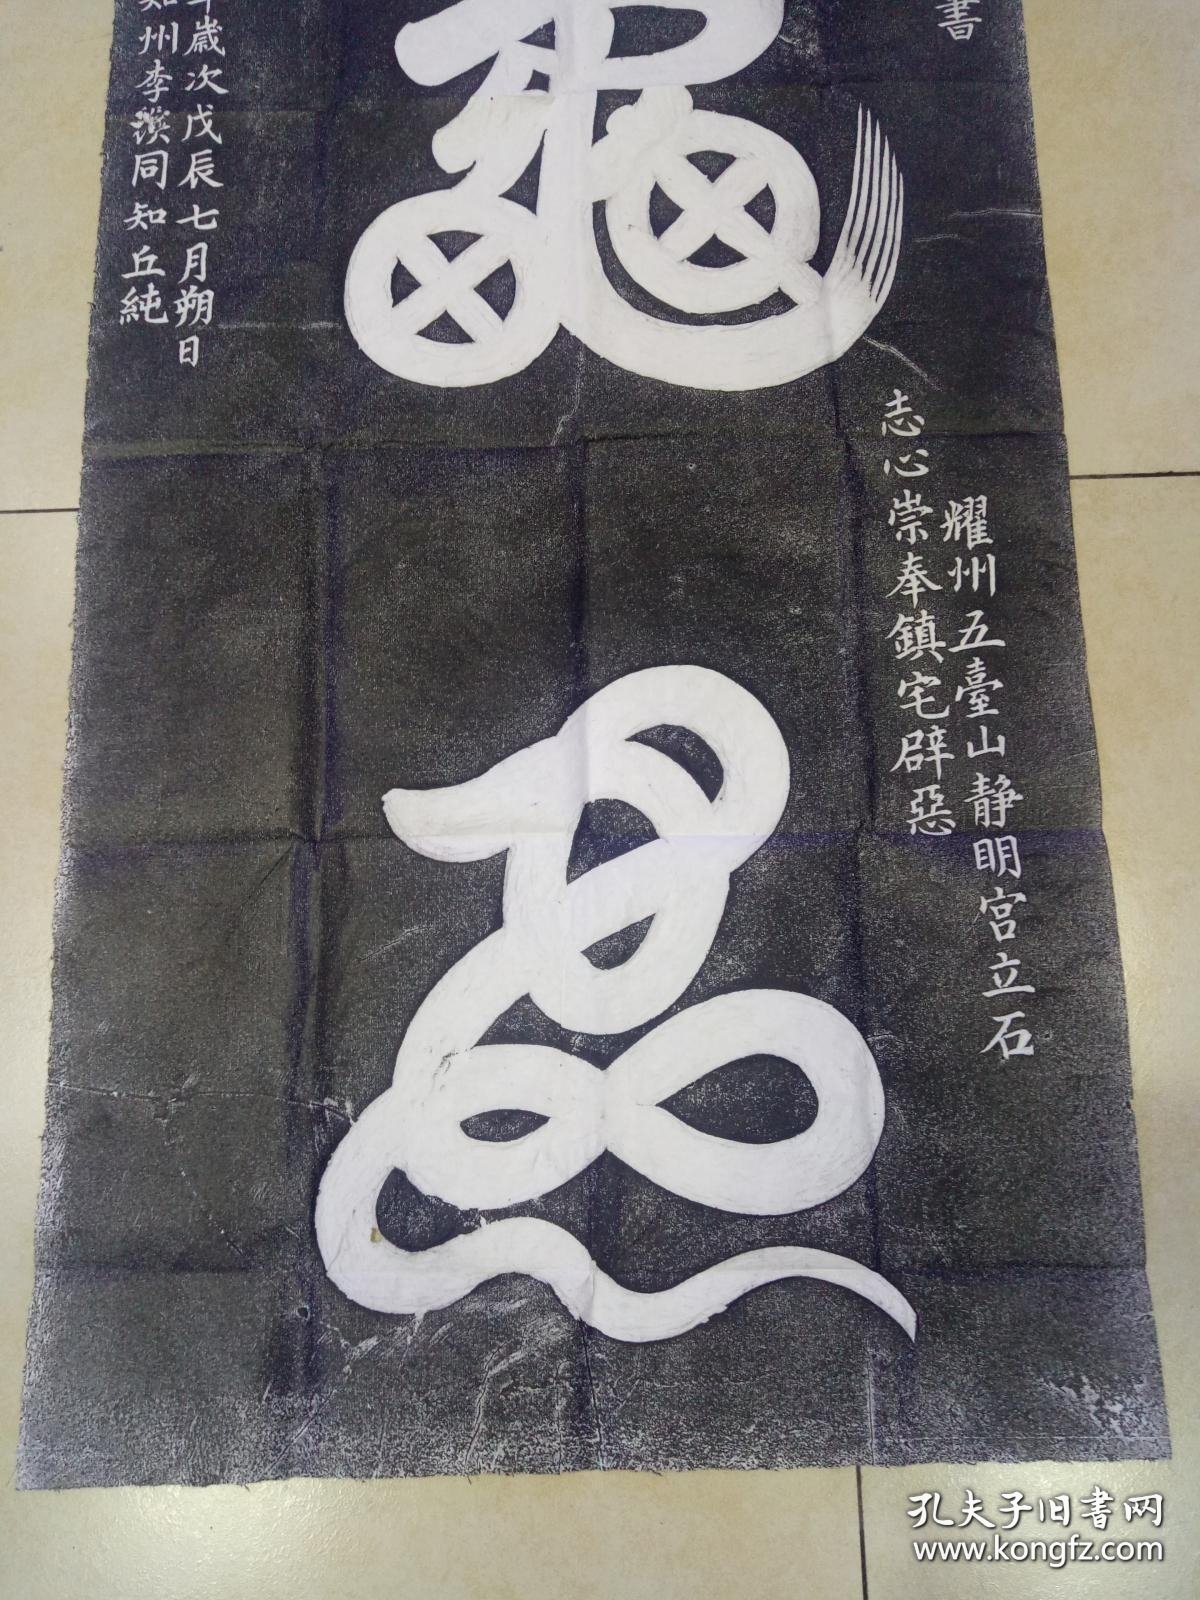 書
耀州五臺山静明宮立石
志心崇奉鎮宅辟惡
歲次戊辰七月朔日
知州李漢同知丘純
孔夫子旧书网
www.kongfz.com